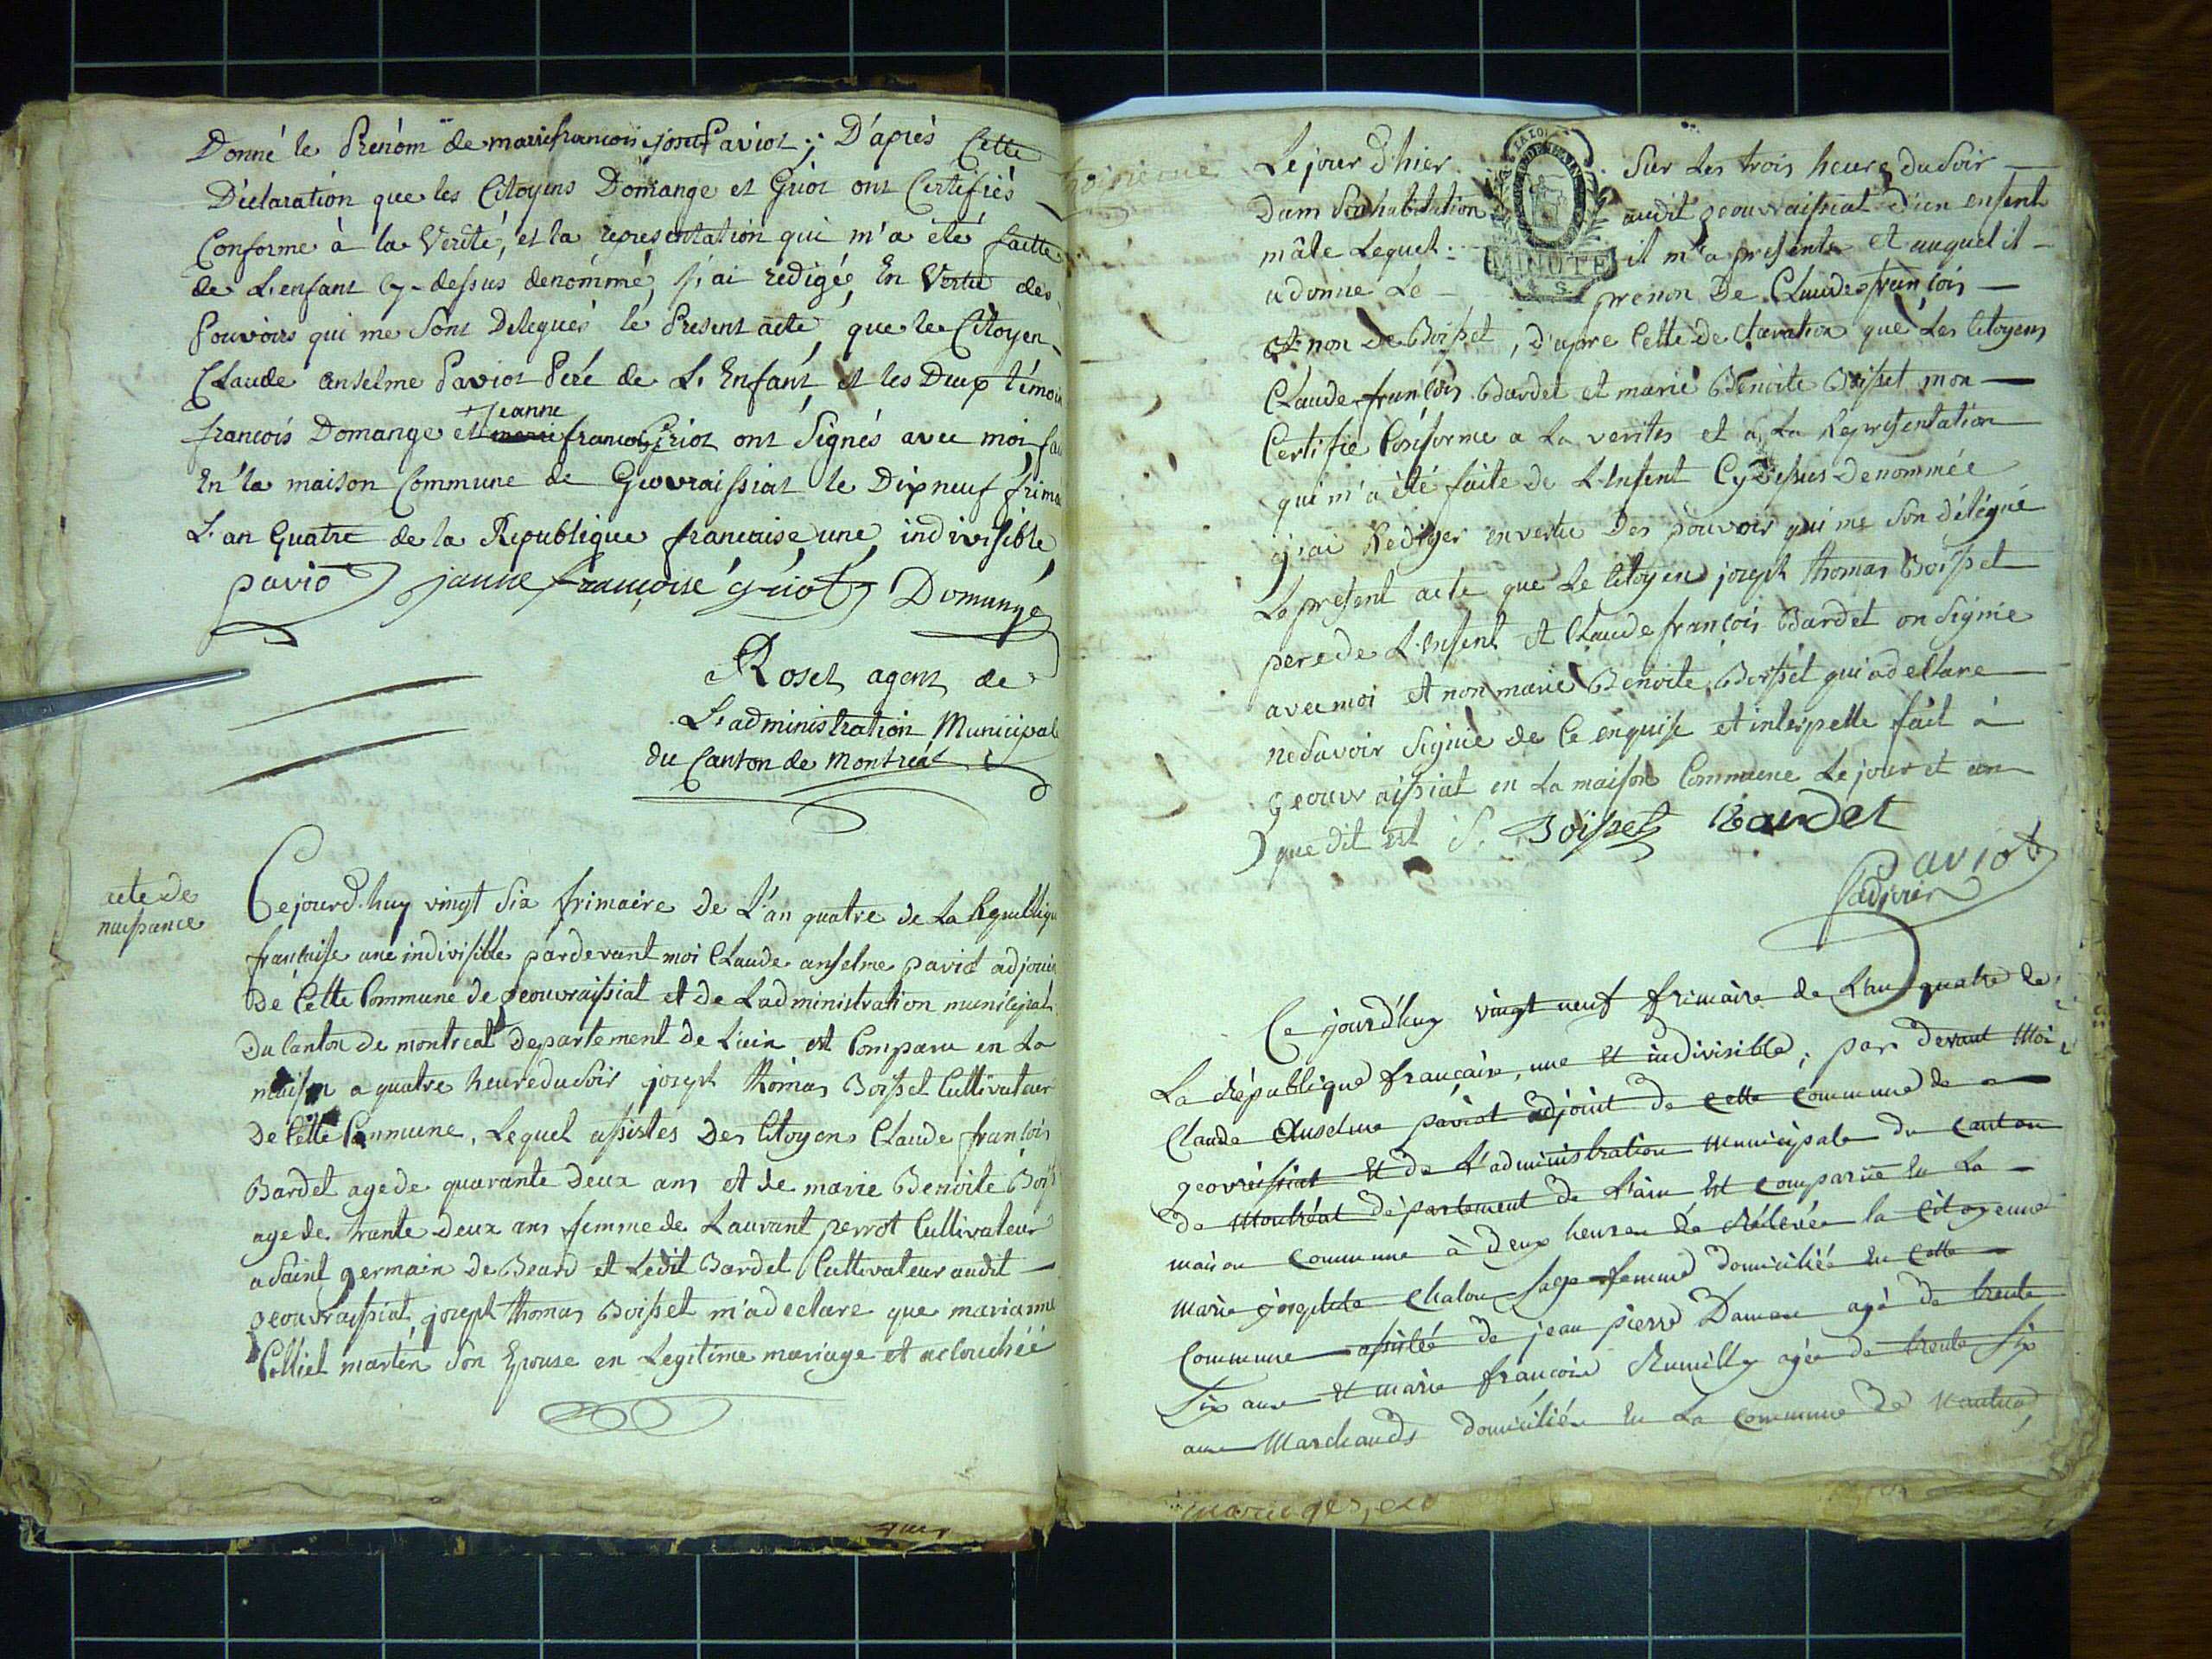 Donné le Prénom de marie francois josep Paviot; D'après Cette
Déclaration que les Citoyens Domange et Griot ont Certifiés
Conforme à la Verité, et la representation qui m'a eté faitte
de L'enfant cy-dessus denommé, j'ai redigée, En Vertu des
Pouvoirs qui me Sont Delegués le Present acte, que le Citoyen
Claude anselme Paviot Pere de L'Enfant, et les Deux témoin
Jeanne
francois Domange et marie francois Griot ont Signés avec moi, fai
En la maison Commune de Geovraissiat le Dix neuf frima
L'an Quatre de la Republique francaise, une, indivisible,
pavio janne françoise griot Domange
Roset agent de
L'administration Municipal
du Canton de Montreal
acte de
naissance
Cejourd'huy vingt Six frimaire de L'an quatre de La Republiqu
française une indivisible pardevant moi Claude anselme paviot adjoin
De Cette Commune de geouvraissiat et de Ladministration municipal
Du Canton de montreal departement de Lain est Comparu en La
maison a quatre heure du Soir joseph thomas Boisset Cultivateur
De Cette Commune, Lequel assistes Des Citoyens Claude francois
Bardet age de quarante deux ans et de marie Benoite Bois
age de trante deux ans femme de Laurant perrot Cultivateur
a Saint germain de Beard et Ledit Bardet Cultivateur audit
geouvraissiat, joseph thomas Boisset m'a declare que marianne
Colliet martin Son Epouse en Legitime mariage et aclouchéé
Le jour d'hier Sur Les trois heure du Soir
Dam Son habitation audit geouvraissiat d'un enfent
mâle Lequel il m'a presente et auquel il
a donne Le prenon De Claude françois
et non de Boisset, d'apre Cette declaration que Les Citoyens
Claude françois Bardet et marie Benoite Boisset mon
Certifie Conforme a La verites et a La Representation
qui m'a été faite de L'Enfent Cy Dessus Denommée
j'ai Rediger en vertu Des pouvoir qui me Son délégué
Le present acte que Le Citoyen joseph thomas Boisset
pere de L'Enfent et Claude françois Bardet on Signie
avec moi et non marie Benoite Boisset qui a declare
ne Savoir Signie de Ce enquise et interpelle fait à
geouvraissiat en La maison Commune Le jour et an
que dit est J. Boisset Bardet
Paviot
adjoin
LA LOI
MINUTE
Ce jourd'huy vingt neuf frimaire de L'an quatre de
La république française, une et indivisible, par devant Moi
Claude Anselme paviot adjoint de Cette Commune de
geovreissiat et de L'administration Municipale du Canton
de Montréal département de L'ain est Comparüe En La
maison Commune à deux heures de Relevée la Citoyenne
Marie josephte Chalon Sage femme domiciliée En Cette
Commune assistée de jean pierre Damon agé de trente
Six ans et marie francoise Rumilly agée de trente Six
ans Marchands domiciliés En La Commune de Nantua
mariages, etc